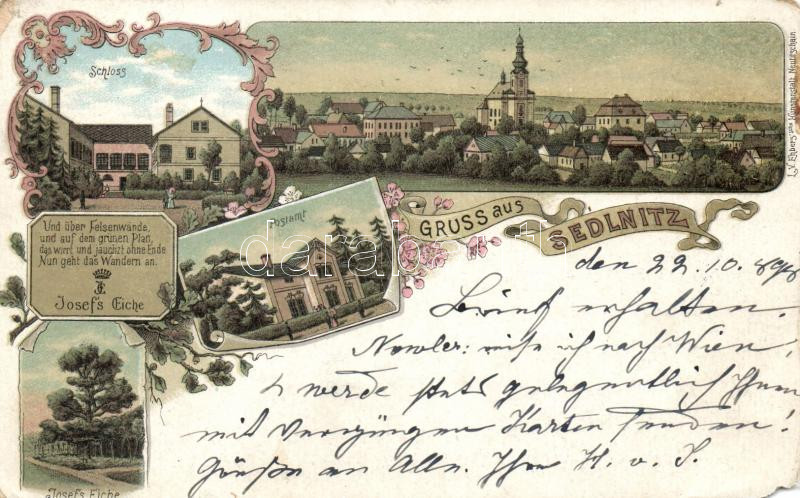 Schloss
L. v. Enders'sche Kunstanstalt, Neutitschein.
Und über Felsenwände,
und auf dem grünen Plan,
das wirrt und jauchzt ohne Ende
Nun geht das Wandern an.
Josef's Eiche
Postamt
GRUSS aus
SEDLNITZ
darabanth
den 22. 10. 898
Brief erhalten.
ich nach Wien,
werde stets gelegentlich Ihnen
mit Vergnügen Karten senden!
Grüße an Alle. Ihr H. v. S.
Josef's Eiche